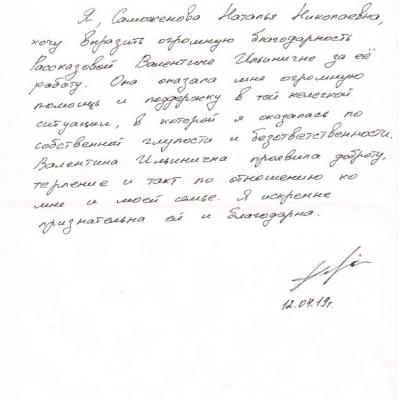 Я, Саможенова Наталья Николаевна,
хочу выразить огромную благодарность
Рассказовой Валентине Ильиничне за её
работу. Она оказала мне огромную
помощь и поддержку в той нелегкой
ситуации, в которой я оказалась по
собственной глупости и безответственности.
Валентина Ильинична проявила доброту,
терпение и такт по отношению ко
мне и моей семье. Я искренне
признательна ей и благодарна.
12.04.19г.